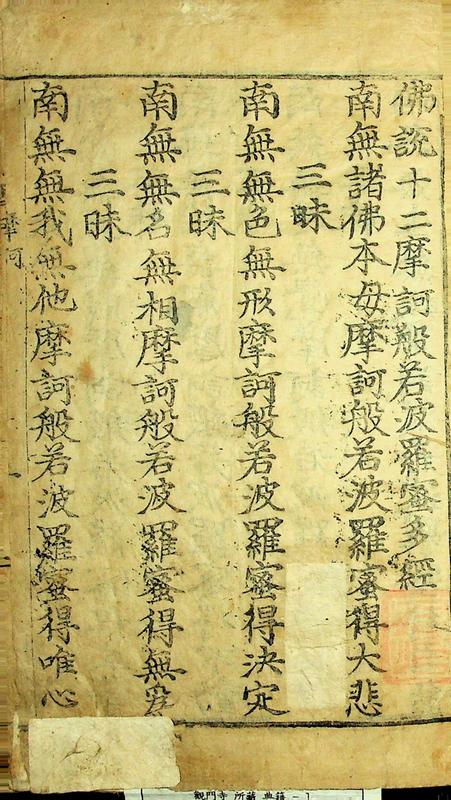 佛說十二摩訶般若波羅蜜多經
南無諸佛本母摩訶般若波羅蜜得大悲
三昧
南無無色無形摩訶般若波羅蜜得決定
三昧
南無無名無相摩訶般若波羅蜜得無
三昧
南無無我無他摩訶般若波羅蜜得唯心
摩訶
門寺 所藏 典籍 - 1